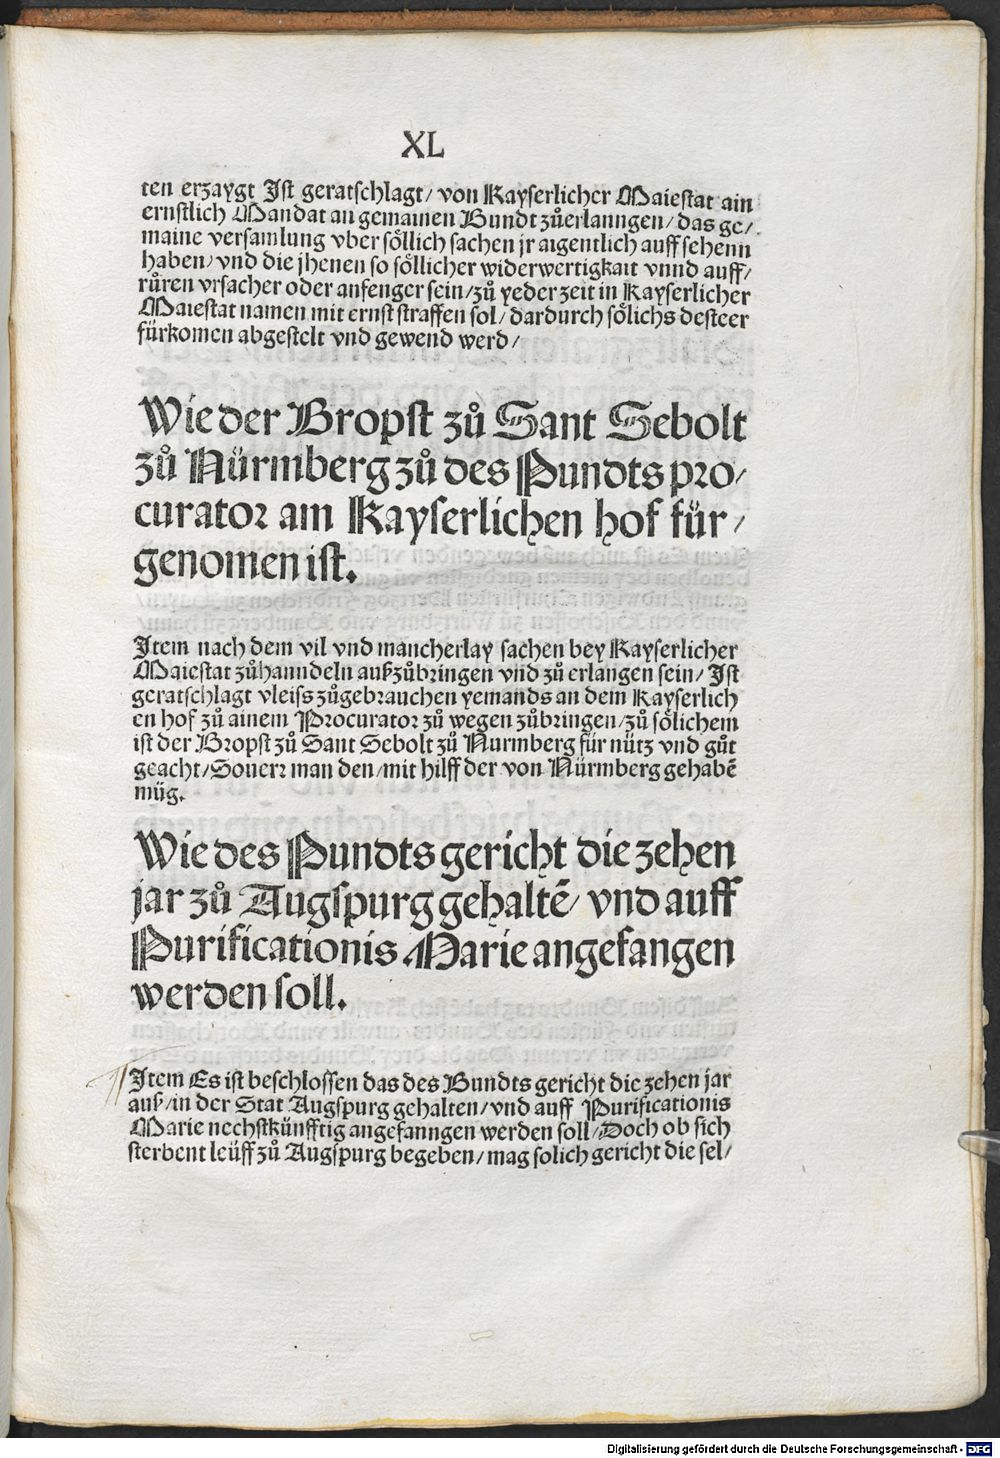 XL
ten erzaygt Ist geratschlagt/ von Kayserlicher Maiestat ain
ernstlich Mandat an gemainen Bundt zůerlanngen/ das ge/
maine versamlung vber söllich sachen jr aigentlich auff sehenn
haben/ vnd die jhenen so söllicher widerwertigkait vnnd auff/
růren vrsacher oder anfenger sein/ zů yeder zeit in Kayserlicher
Maiestat namen mit ernst straffen sol/ dardurch sölichs desteer
fürkomen abgestelt vnd gewend werd/
Wie der Bropst zů Sant Sebolt
zů Nürmberg zů des Pundts pro/
curator am Kayserlichen hof für/
genomen ist.
Item nach dem vil vnd mancherlay sachen bey Kayserlicher
Maiestat zůhanndeln außzůbringen vnd zů erlangen sein/ Ist
geratschlagt vleiss zůgebrauchen yemands an dem Kayserlich
en hof zů ainem Procurator zů wegen zůbringen/ zů sölichem
ist der Bropst zů Sant Sebolt zů Nurmberg für nütz vnd gůt
geacht/ Souerr man den/ mit hilff der von Nürmberg gehabē
müg.
Wie des Pundts gericht die zehen
jar zů Augspurg gehaltē/ vnd auff
Purificationis Marie angefangen
werden soll.
Item Es ist beschlossen das des Bundts gericht die zehen jar
auß/ in der Stat Augspurg gehalten/ vnd auff Purificationis
Marie nechstkünfftig angefanngen werden soll/ Doch ob sich
sterbent leüff zů Augspurg begeben/ mag solich gericht die sel/
Digitalisierung gefördert durch die Deutsche Forschungsgemeinschaft - DFG